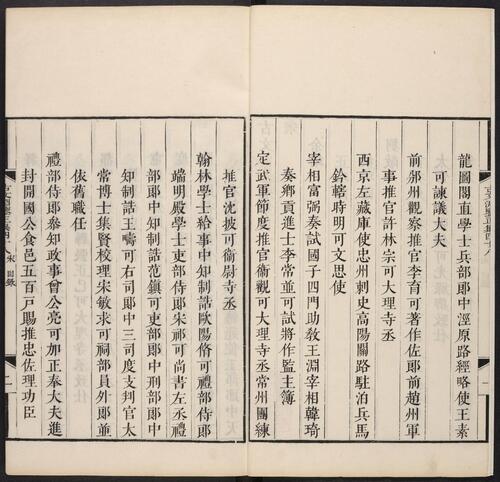 龍圖閣直學士兵部郎中涇原路經略使王素
大可諫議大夫
前邠州觀察推官李育可著作佐郎前趙州軍
事推官許林宗可大理寺丞
西京左藏庫使忠州刺史高陽關路駐泊兵馬
鈐轄時明可文思使
宰相富弼奏試國子四門助教王淵宰相韓琦
奏鄉貢進士李常並可試將作監主簿
定武軍節度推官衞觀可大理寺丞常州團練
推官沈披可衞尉寺丞
翰林學士給事中知制誥歐陽脩可禮部侍郎
端明殿學士吏部侍郎宋祁可尚書左丞禮
部郎中知制誥范鎮可吏部郎中刑部郎中
知制誥王疇可右司郎中三司度支判官太
常博士集賢校理宋敏求可祠部員外郎並
依舊職任
禮部侍郎參知政事曾公亮可加正奉大夫進
封開國公食邑五百戶賜推忠佐理功臣